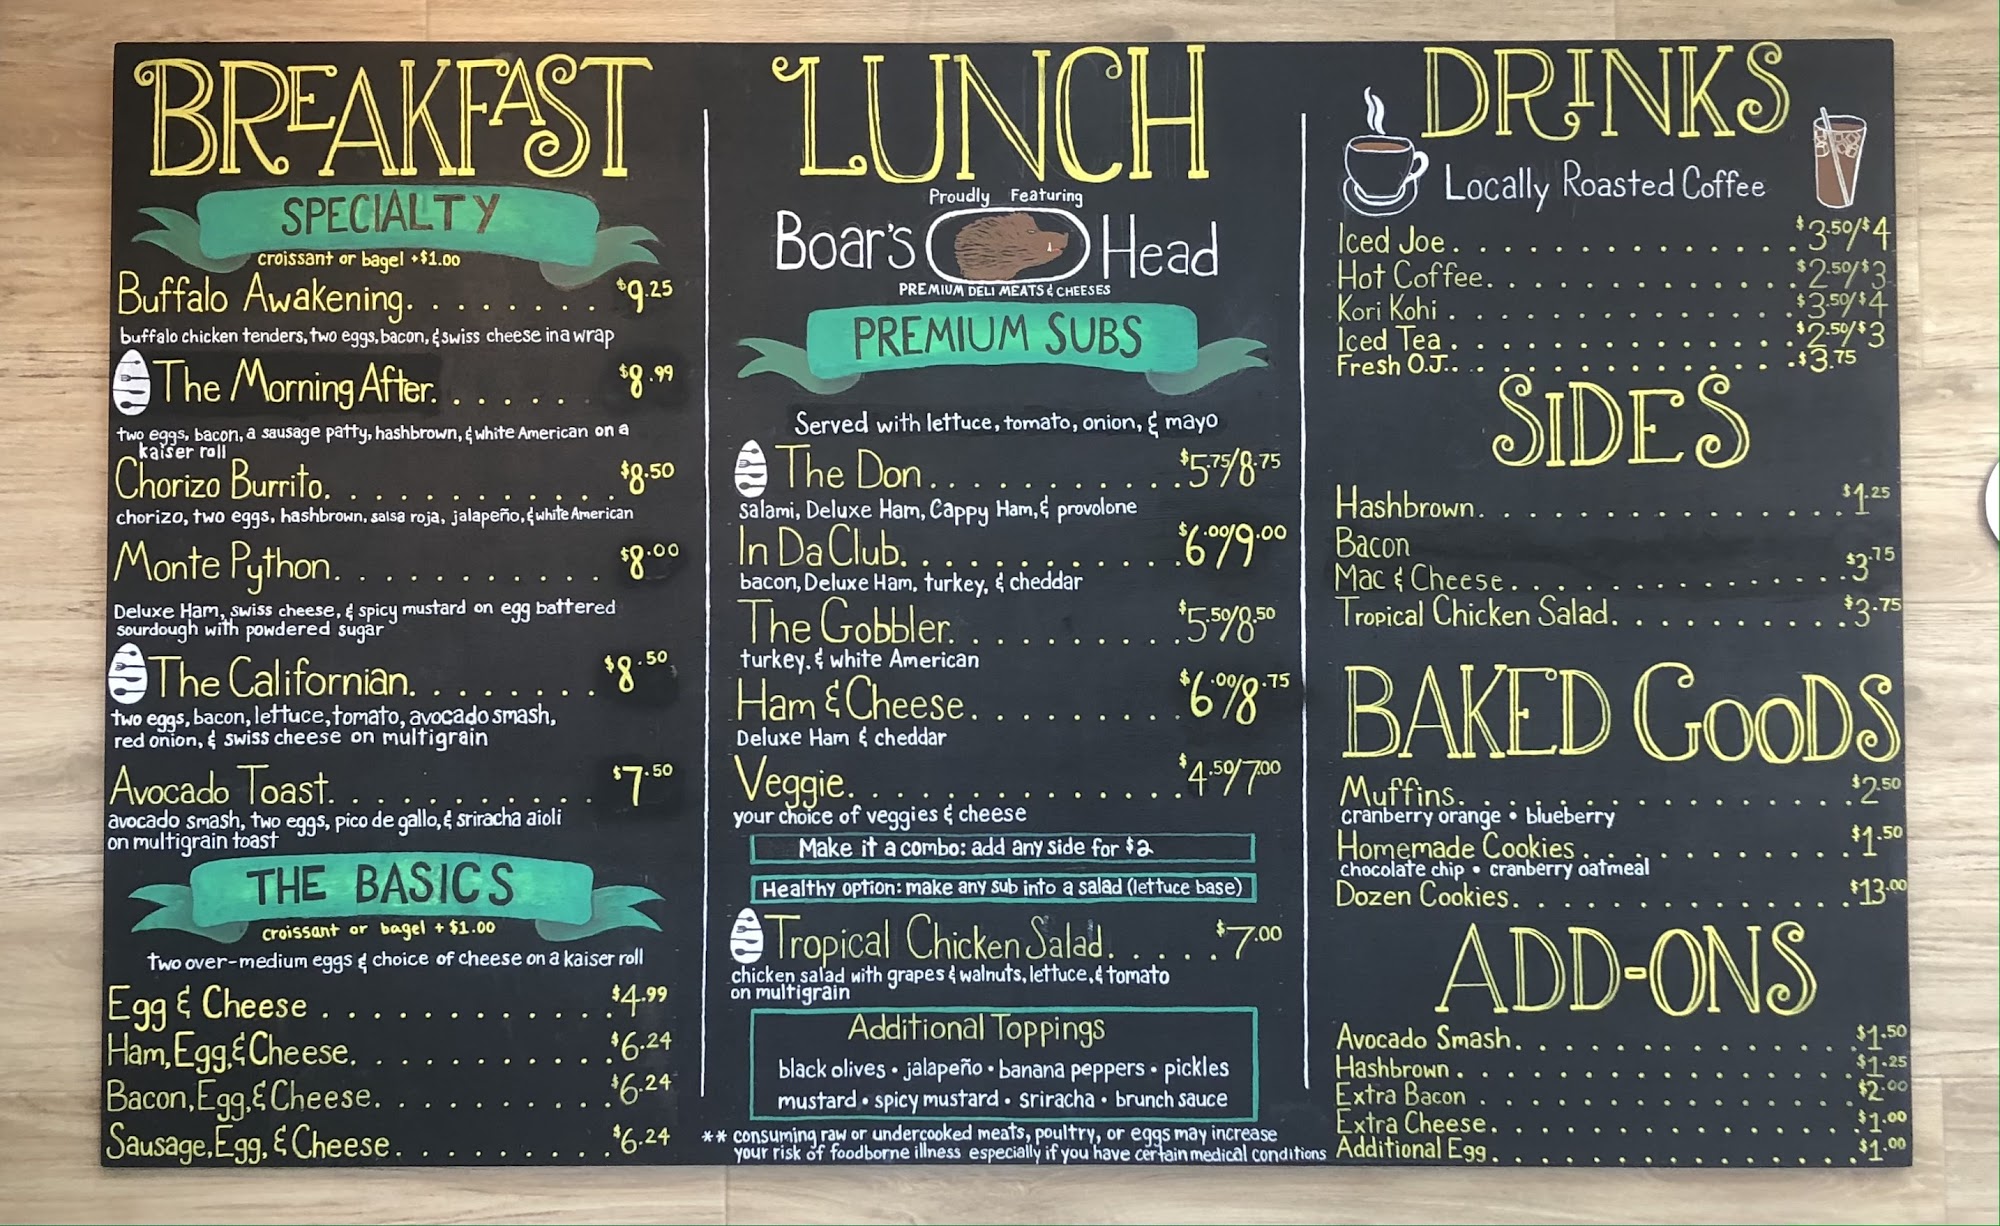 BREAKFAST
SPECIALTY
croissant or bagel +$1.00
Buffalo Awakening. . . . . . . . $9.25
buffalo chicken tenders, two eggs, bacon, & swiss cheese in a wrap
The Morning After. . . . . . . $8.99
two eggs, bacon, a sausage patty, hashbrown, & white American on a
kaiser roll
Chorizo Burrito. . . . . . . . . . . . $8.50
chorizo, two eggs, hashbrown, salsa roja, jalapeño, & white American
Monte Python. . . . . . . . . . . $8.00
Deluxe Ham, swiss cheese, & spicy mustard on egg battered
sourdough with powdered sugar
The Californian. . . . . . . . $8.50
two eggs, bacon, lettuce, tomato, avocado smash,
red onion, & swiss cheese on multigrain
Avocado Toast. . . . . . . . . . . $7.50
avocado smash, two eggs, pico de gallo, & sriracha aioli
on multigrain toast
THE BASICS
croissant or bagel + $1.00
Two over-medium eggs & choice of cheese on a kaiser roll
Egg & Cheese . . . . . . . . . . . . $4.99
Ham, Egg, & Cheese. . . . . . . . . . . $6.24
Bacon, Egg, & Cheese. . . . . . . . . . $6.24
Sausage, Egg, & Cheese. . . . . . . . . $6.24
LUNCH
Proudly Featuring
Boar's Head
PREMIUM DELI MEATS & CHEESES
PREMIUM SUBS
Served with lettuce, tomato, onion, & mayo
The Don. . . . . . . . . . . $5.75/8.75
salami, Deluxe Ham, Cappy Ham, & provolone
In Da Club. . . . . . . . . . . . $6.00/9.00
bacon, Deluxe Ham, turkey, & cheddar
The Gobbler. . . . . . . . . . $5.50/8.50
turkey, & white American
Ham & Cheese. . . . . . . . . $6.00/8.75
Deluxe Ham & cheddar
Veggie. . . . . . . . . . . . . . $4.50/7.00
your choice of veggies & cheese
Make it a combo: add any side for $2
Healthy option: make any sub into a salad (lettuce base)
Tropical Chicken Salad. . . . . . $7.00
chicken salad with grapes & walnuts, lettuce, & tomato
on multigrain
Additional Toppings
black olives • jalapeño • banana peppers • pickles
mustard • spicy mustard • sriracha • brunch sauce
** consuming raw or undercooked meats, poultry, or eggs may increase
your risk of foodborne illness especially if you have certain medical conditions
DRINKS
Locally Roasted Coffee
Iced Joe. . . . . . . . . . . . . . $3.50/$4
Hot Coffee. . . . . . . . . . . . . $2.50/$3
Kori Kohi . . . . . . . . . . . . . . $3.50/$4
Iced Tea . . . . . . . . . . . . . . $2.50/$3
Fresh O.J.. . . . . . . . . . . . . . $3.75
SIDES
Hashbrown. . . . . . . . . . . . . . $1.25
Bacon
Mac & Cheese. . . . . . . . . . . . . $3.75
Tropical Chicken Salad. . . . . . . . . $3.75
BAKED GOODS
Muffins. . . . . . . . . . . . . . . $2.50
cranberry orange • blueberry
Homemade Cookies . . . . . . . . . . $1.50
chocolate chip • cranberry oatmeal
Dozen Cookies. . . . . . . . . . . . . $13.00
ADD-ONS
Avocado Smash. . . . . . . . . . . . $1.50
Hashbrown . . . . . . . . . . . . . . $1.25
Extra Bacon . . . . . . . . . . . . . $2.00
Extra Cheese. . . . . . . . . . . . . $1.00
Additional Egg. . . . . . . . . . . . . $1.00